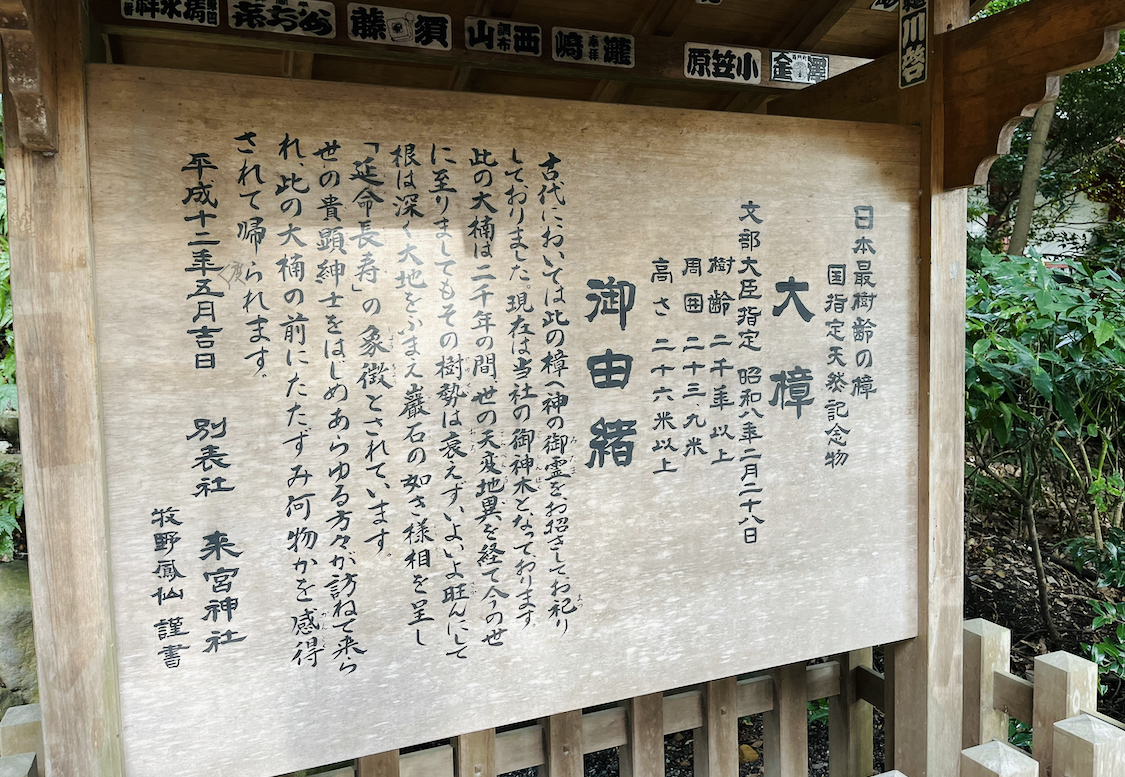 日本最樹齢の樟
国指定天然記念物
大樟
文部大臣指定 昭和八年二月二十八日
樹齢 二千年以上
周囲 二十三、九米
高さ 二十六米以上
御由緒
古代においては此の樟へ神の御霊をお招きして、お祀り
しておりました。現在は当社の御神木となっております。
此の大楠は二千年の間、世の天変地異を経て今の世
に至りましてもその樹勢は衰えず、いよいよ旺んにして
根は深く大地をふまえ巖石の如き様相を呈し
「延命長寿」の象徴とされています。
世の貴顕紳士をはじめあらゆる方々が訪ねて来ら
れ、此の大楠の前にたたずみ何物かを感得
されて帰られます。
平成十二年五月吉日 別表社 来宮神社
牧野鳳仙 謹書
須藤
西山
瀧崎
小笠原